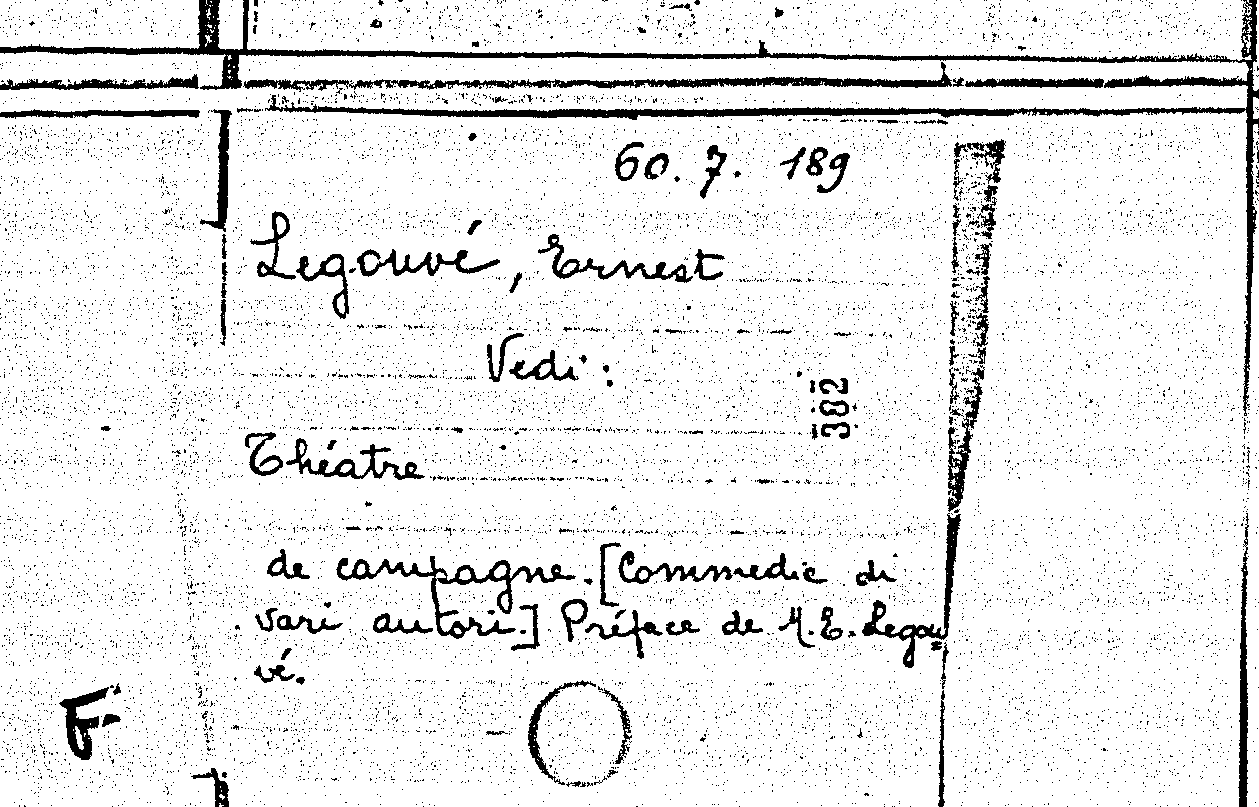 60. 7. 189
Legouvé, Ernest
Vedi:
382
Théatre
de campagne. [Commedie di
vari autori.] Préface de M. E. Legou=
vé.
F